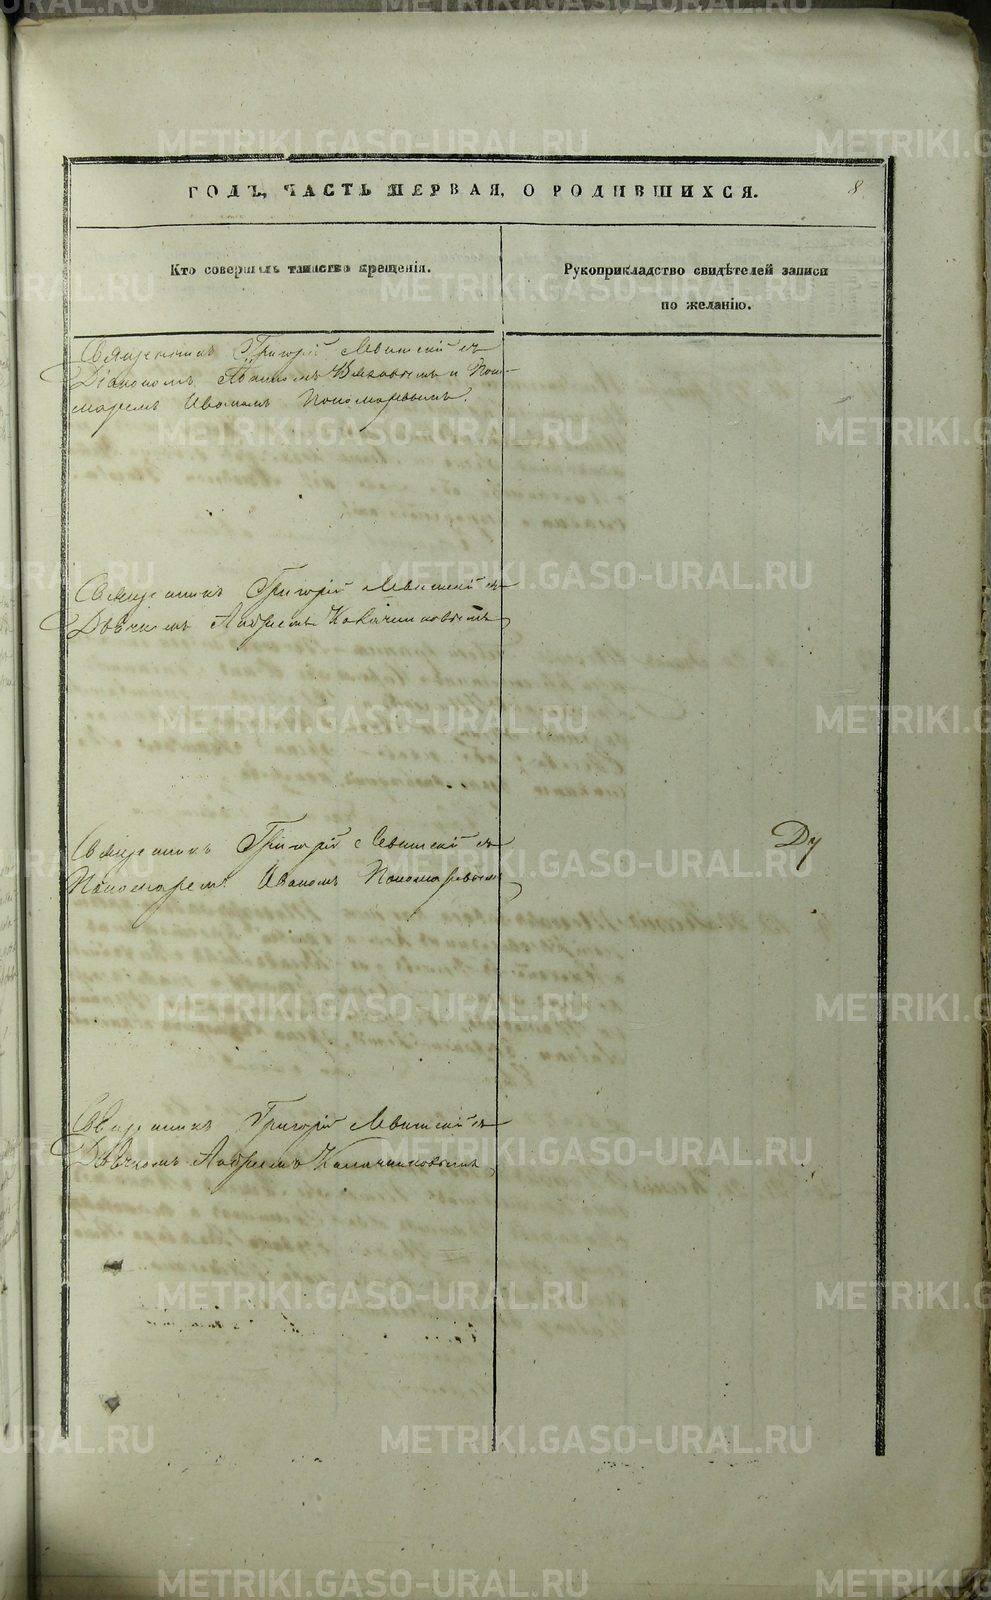 ГОДЪ, ЧАСТЬ ПЕРВАЯ, О РОДИВШИХСЯ.
8
Кто совершалъ таинство крещенія.
Рукоприкладство свидѣтелей записи
по желанію.
Священникъ Григорій Левитскій съ
Діакономъ и Поно-
маремъ Иваномъ Пономаревымъ.
Священникъ Григорій Левитскій съ
Дьячкомъ Андреемъ Калачниковымъ
Священникъ Григорій Левитскій съ
Пономаремъ Иваномъ Пономаревымъ
Ду
Священникъ Григорій Левитскій съ
Дьячкомъ Андреемъ Калачниковымъ
METRIKI.GASO-URAL.RU